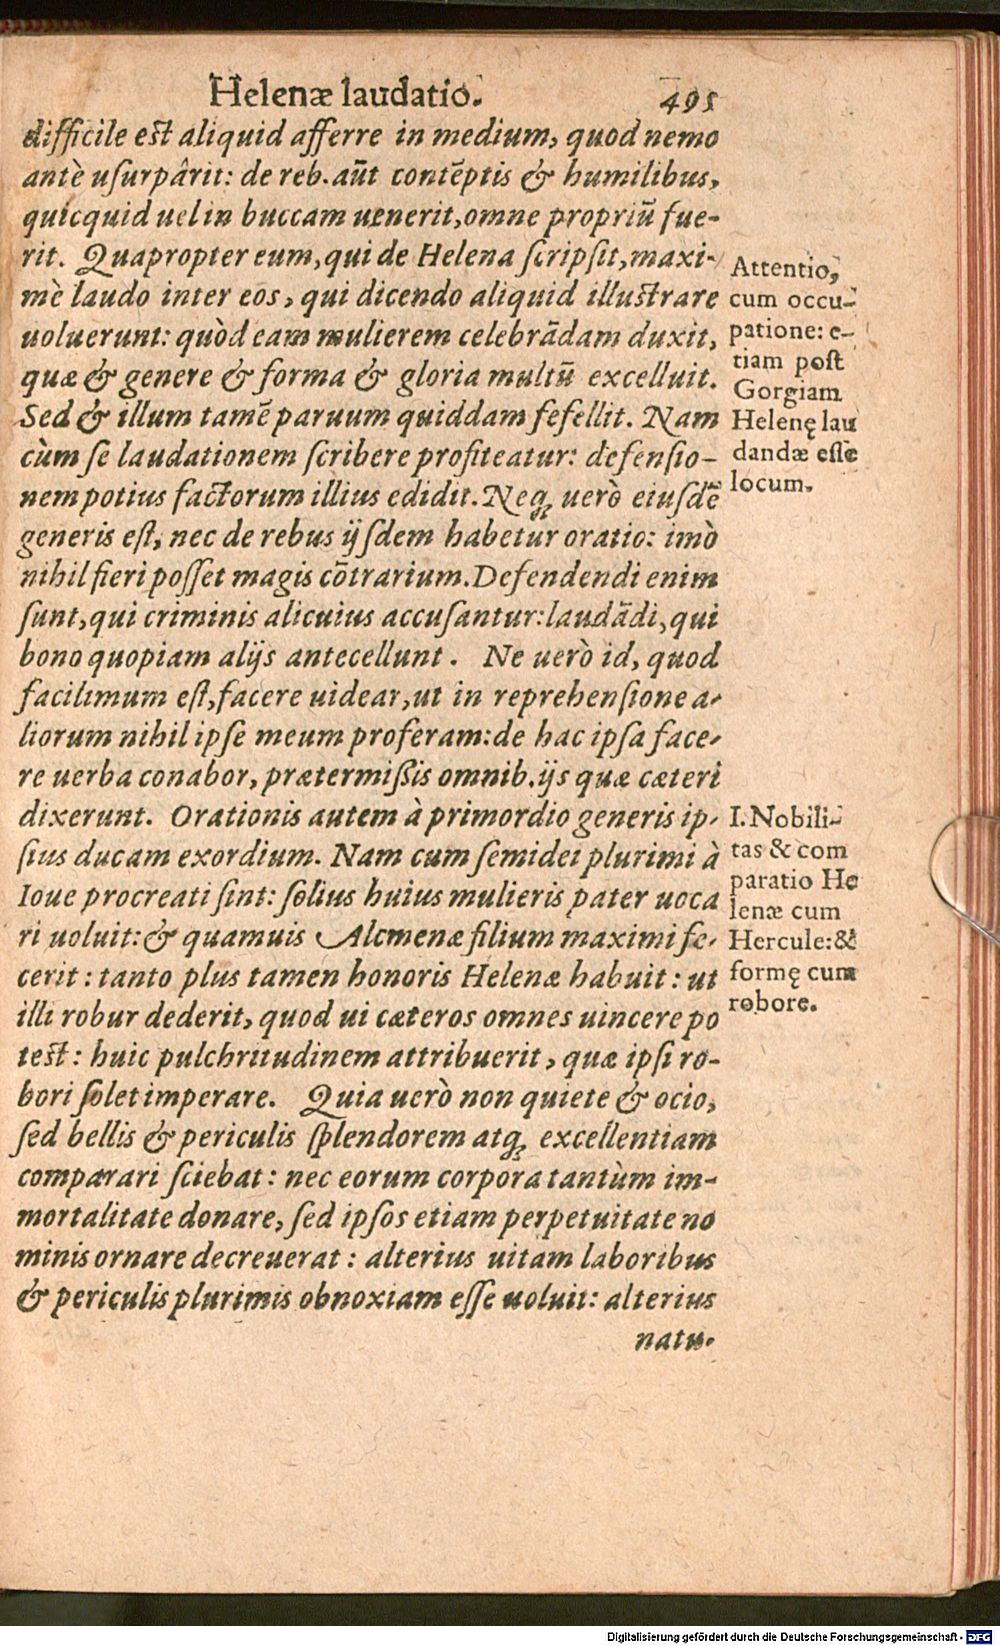 Helenæ laudatio. 495
difficile est aliquid afferre in medium, quod nemo
antè uſurpârit: de reb. aūt contēptis & humilibus,
quicquid uel in buccam uenerit, omne propriū fue-
rit. Quapropter eum, qui de Helena ſcripſit, maxi-
mè laudo inter eos, qui dicendo aliquid illuſtrare
uoluerunt: quòd eam mulierem celebrādam duxit,
quæ & genere & forma & gloria multū excelluit.
Sed & illum tamē paruum quiddam fefellit. Nam
cùm ſe laudationem ſcribere profiteatur: defenſio-
nem potius factorum illius edidit. Neq; uerò eiuſdē
generis eſt, nec de rebus ijſdem habetur oratio: imò
nihil fieri poſſet magis cōtrarium. Defendendi enim
ſunt, qui criminis alicuius accuſantur: laudādi, qui
bono quopiam alijs antecellunt. Ne uerò id, quod
facilimum eſt, facere uidear, ut in reprehenſione a-
liorum nihil ipſe meum proferam: de hac ipſa face-
re uerba conabor, prætermiſsis omnib. ijs quæ cæteri
dixerunt. Orationis autem à primordio generis ip-
ſius ducam exordium. Nam cum ſemidei plurimi à
Ioue procreati ſint: ſolius huius mulieris pater uoca
ri uoluit: & quamuis Alcmenæ filium maximi fe-
cerit: tanto plus tamen honoris Helenæ habuit: ut
illi robur dederit, quod ui cæteros omnes uincere po
test: huic pulchritudinem attribuerit, quæ ipſi ro-
bori ſolet imperare. Quia uerò non quiete & ocio,
ſed bellis & periculis ſplendorem atq; excellentiam
comparari ſciebat: nec eorum corpora tantùm im-
mortalitate donare, ſed ipſos etiam perpetuitate no
minis ornare decreuerat: alterius uitam laboribus
& periculis plurimis obnoxiam eſſe uoluit: alterius
natu-
Attentio,
cum occu-
patione: e-
tiam poſt
Gorgiam
Helenę lau
dandæ eſſe
locum.
I. Nobili-
tas & com
paratio He
lenæ cum
Hercule: &
formę cum
robore.
Digitalisierung gefördert durch die Deutsche Forschungsgemeinschaft - DFG